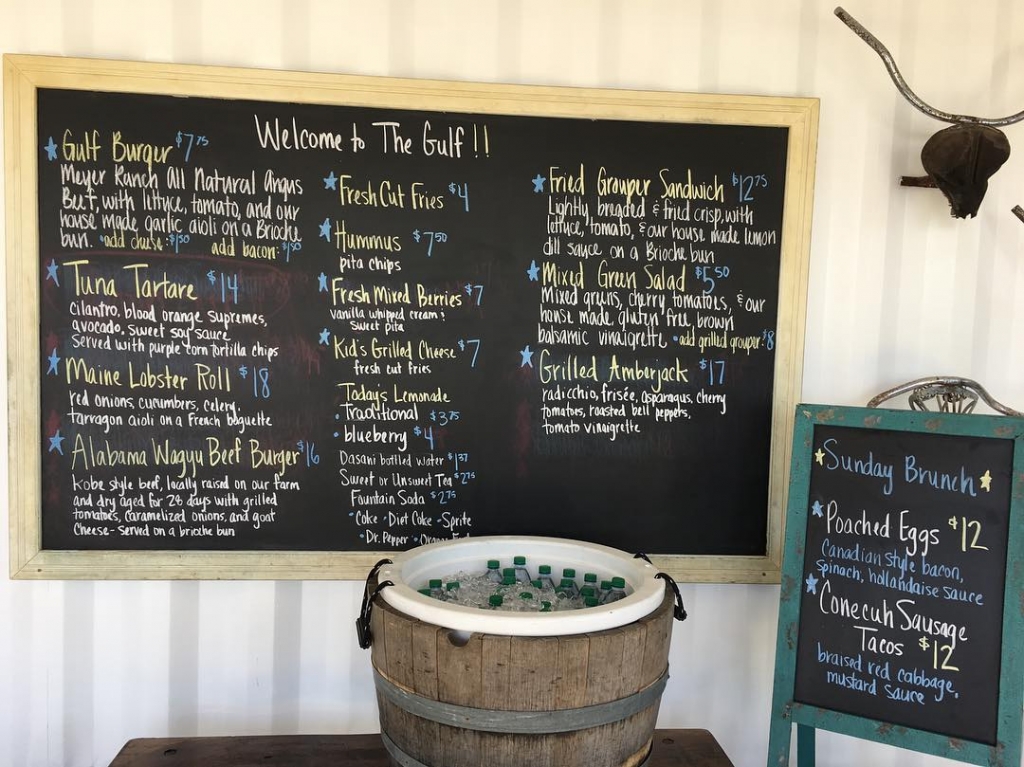 Welcome to The Gulf!!
Gulf Burger $7.75
Meyer Ranch All Natural Angus
Beef, with lettuce, tomato, and our
house made garlic aioli on a Brioche
bun. •add cheese: $1.50 add bacon: $1.50
Tuna Tartare $14
cilantro, blood orange supremes,
avocado, sweet soy sauce
Served with purple corn tortilla chips
Maine Lobster Roll $18
red onions, cucumbers, celery,
tarragon aioli on a French baguette
Alabama Wagyu Beef Burger $16
Kobe style beef, locally raised on our farm
and dry aged for 28 days with grilled
tomatoes, caramelized onions, and goat
Cheese - served on a brioche bun
Fresh Cut Fries $4
Hummus $7.50
pita chips
Fresh Mixed Berries $7
vanilla whipped cream &
sweet pita
Kid's Grilled Cheese $7
fresh cut fries
Today's Lemonade
• Traditional $3.75
• blueberry $4
Dasani bottled water $1.37
Sweet or Unsweet Tea $2.75
Fountain Soda $2.75
•Coke •Diet Coke •Sprite
•Dr. Pepper •
Fried Grouper Sandwich $12.75
Lightly breaded & fried crisp, with
lettuce, tomato, & our house made lemon
dill sauce on a Brioche bun
Mixed Green Salad $5.50
Mixed greens, cherry tomatoes, & our
house made gluten free brown
balsamic vinaigrette •add grilled grouper $8
Grilled Amberjack $17
radicchio, frisée, asparagus, cherry
tomatoes, roasted bell peppers,
tomato vinaigrette
Sunday Brunch
Poached Eggs $12
Canadian style bacon,
spinach, hollandaise sauce
Conecuh Sausage
Tacos $12
braised red cabbage,
mustard sauce